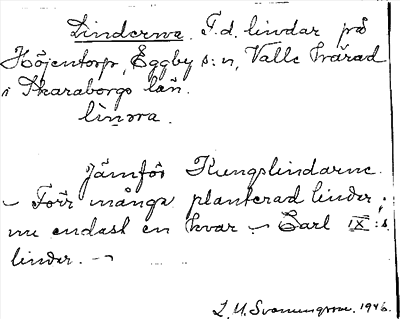 Linderna. F.d. lindar på
Höjentorp, Eggby s:n, Valle härad
i Skaraborgs län.
lìnɔra.
Jämför Kungslindarne.
– Förr många planterad linder;
nu endast en kvar – Carl IX:s
linder. –
1946.